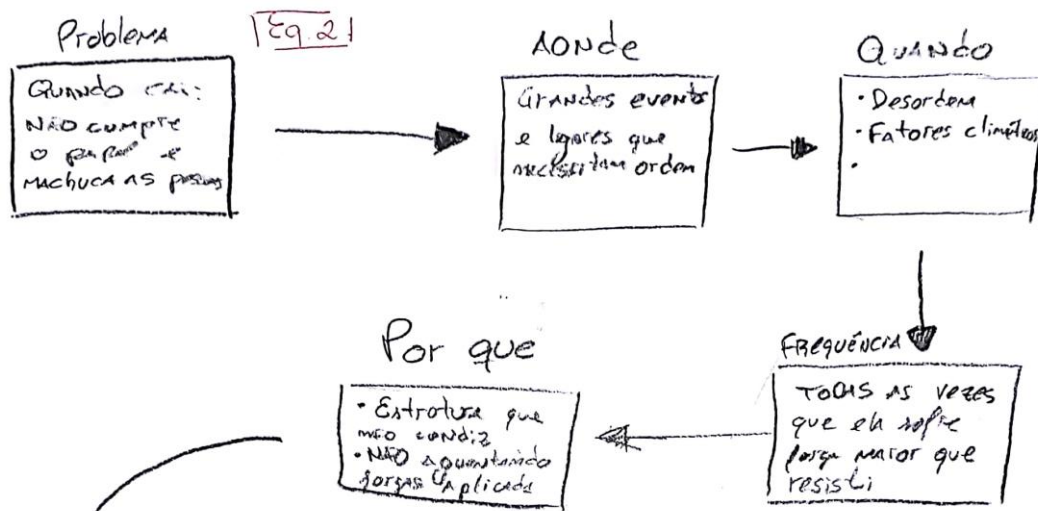 Problema
Eq. 2
Quando cai:
Não cumpre
o papel e
machuca as pessoas
Aonde
Grandes eventos
e lgares que
necessitam ordem
Quando
• Desordem
• Fatores climáticos
•
Frequência
Todas as vezes
que ela sofre
força maior que
resisti
Por que
• Estrotura que
não condiz
• Não aguentando
forças aplicada